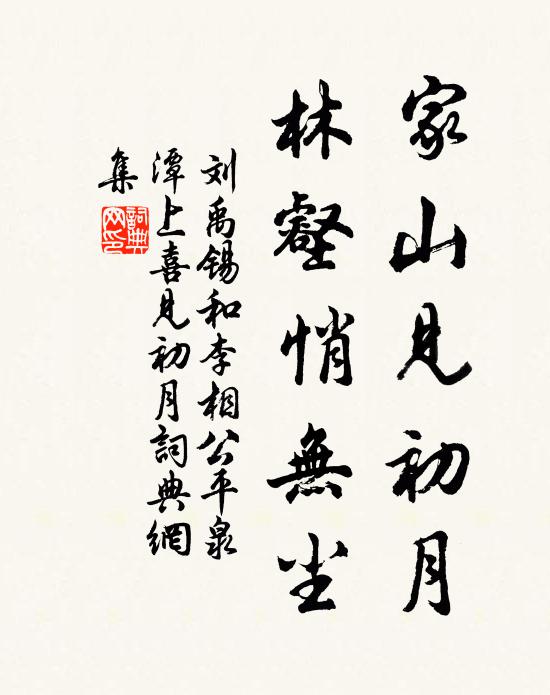 家山見初月
林壑悄無尘
刘禹锡和李相公平泉
潭上喜見初月詞典網
集
詞典
网印